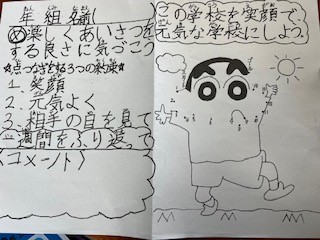 年 組 名前
め 楽しくあいさつを
する良さに気づこう
☆点つなぎをする3つの約束☆
1. 笑顔
2. 元気よく
3. 相手の目を見て
一週間をふり返って
〈コメント〉
この学校を笑顔で、
元気な学校にしよう。